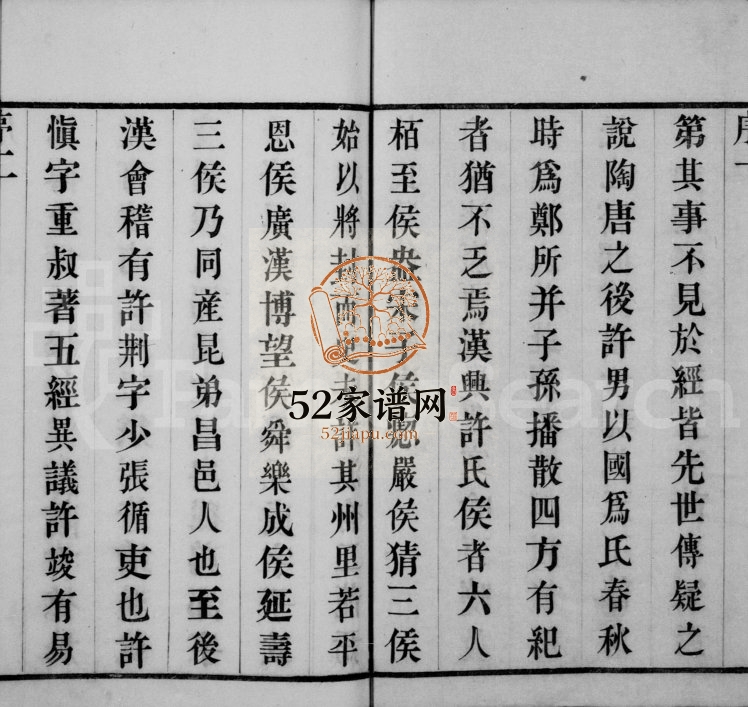 第其事不見於經皆先世傳疑之
說陶唐之後許男以國爲氏春秋
時爲鄭所并子孫播散四方有紀
者猶不乏焉漢興許氏侯者六人
栢至侯盎宋子侯瘛嚴侯猜三侯
始以將封而史未詳其州里若平
恩侯廣漢博望侯舜樂成侯延壽
三侯乃同産昆弟昌邑人也至後
漢會稽有許荆字少張循吏也許
愼字重叔著五經異議許竣有易
52家谱网
52jiapu.com